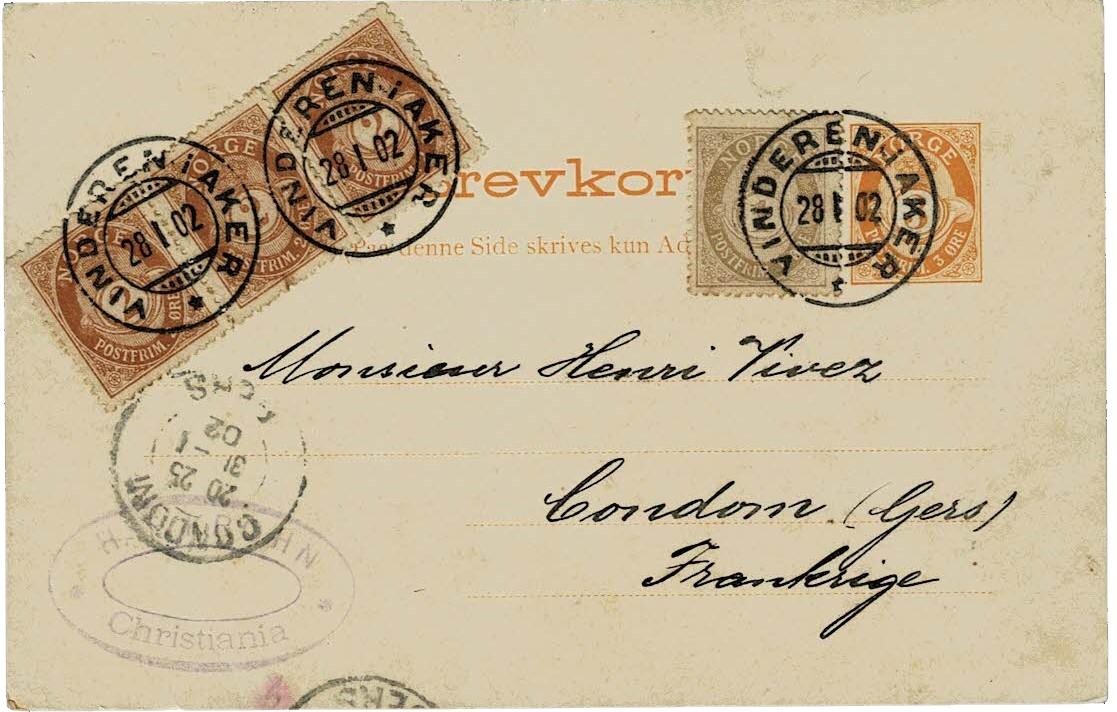 VINDEREN i AKER
28 I 02
VINDEREN i AKER
28 I 02
VINDEREN i AKER
28 I 02
NORGE
POSTFRIM.
NORGE
NO
POSTFRIM.
NORGE
POSTFRIM. 3 ØRE
revkor
denne Side skrives kun Ad
Monsieur Henri Vivez
Condom (Gers)
Frankrige
CONDOM
20 25
31 -1
02
Christiania
ERS